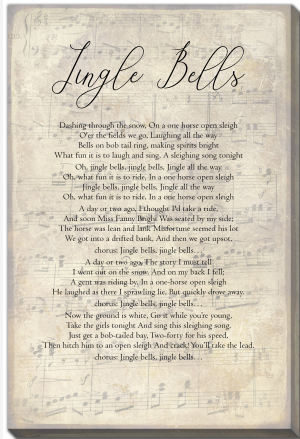 Jingle Bells
Dashing through the snow, On a one horse open sleigh
O'er the fields we go, Laughing all the way
Bells on bob tail ring, making spirits bright
What fun it is to laugh and sing, A sleighing song tonight
Oh, jingle bells, jingle bells, Jingle all the way
Oh, what fun it is to ride, In a one horse open sleigh
Jingle bells, jingle bells, Jingle all the way
Oh, what fun it is to ride, In a one horse open sleigh
A day or two ago, I thought I'd take a ride,
And soon Miss Fanny Bright Was seated by my side;
The horse was lean and lank Misfortune seemed his lot
We got into a drifted bank, And then we got upsot,
chorus: Jingle bells, jingle bells...
A day or two ago, The story I must tell
I went out on the snow, And on my back I fell;
A gent was riding by, In a one-horse open sleigh
He laughed as there I sprawling lie, But quickly drove away.
chorus: Jingle bells, jingle bells...
Now the ground is white, Go it while you're young,
Take the girls tonight And sing this sleighing song.
Just get a bob-tailed bay, Two-forty for his speed,
Then hitch him to an open sleigh And crack! You'll take the lead.
chorus: Jingle bells, jingle bells...